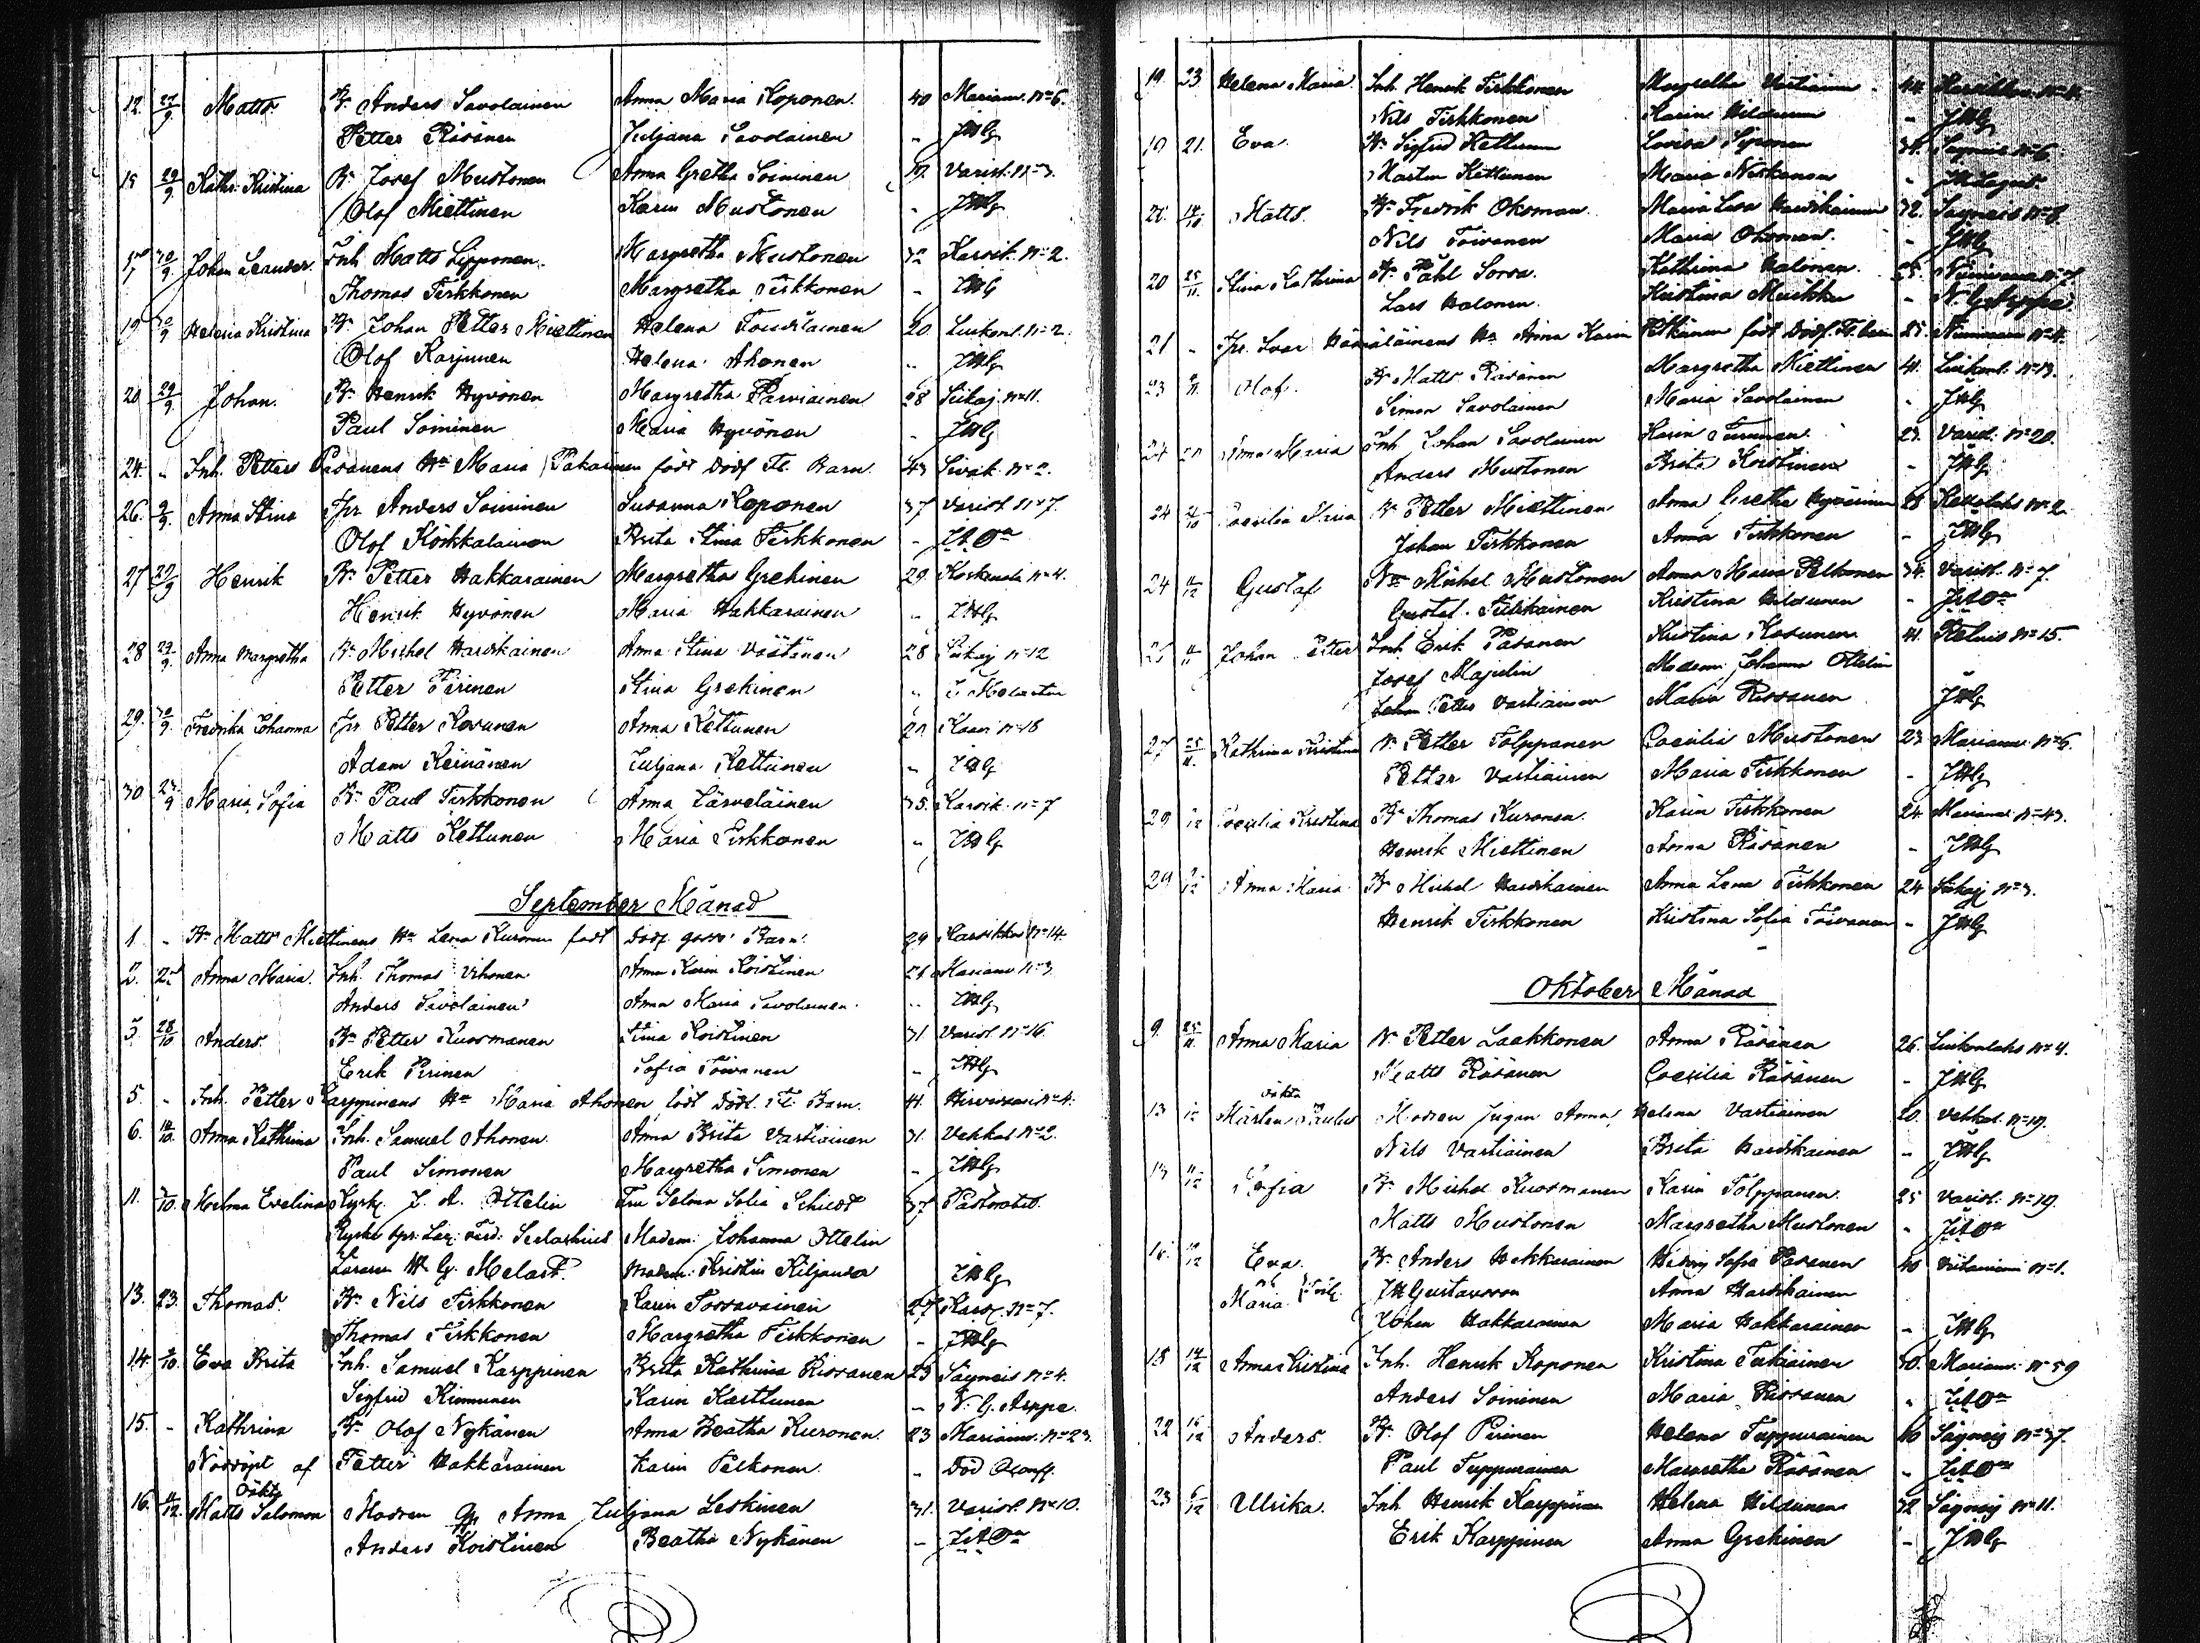 12. 27/9 Matts Bn Anders Savolainen Anna Maria Koponen. 40 Mariam. No 6.
Petter Räsänen Juljana Savolainen " JHG
15 29/9 Kathr. Kristina Bn Josef Mustonen Anna Gretha Soininen 19 Varisl. No 3.
Olof Miettinen Karin Mustonen " JHG
17 30/9 Johan Leander Inh Matts Lipponen Margretha Mustonen 32 Karvik. No 2.
Thomas Tirkkonen Margretha Tirkkonen " JHG
19 30/9 Helena Kristina Bn Johan Petter Miettinen Helena 20 Luikonl. No 2.
Olof Karjunen Helena Ahonen " JHG
20 29/9 Johan. Bn Henrik Hyvönen Margretha Parviainen 28 Siikaj. No 11.
Paul Soininen Maria Hyvönen " JHG
24. " Inh. Petters Pasanens Hu Maria Pakarinen född Dödf Fl. Barn. 43 Sivak. No 2.
26. 9/9. Anna Stina Spr Anders Soininen Susanna Koponen 37 Varisl. No 7.
Olof Korkkalainen Brita Stina Tirkkonen "
27 29/9 Henrik Bn Petter Hakkarainen Margretha Grekinen 29. No 4.
Henrik Hyvönen Maria Hakkarainen " JHG
28 29/9. Anna Margretha Bn Michel Hardikainen Anna Stina Väätänen 28 Siikaj No 12
Petter Pirinen Stina Grekinen "
29. 30/9. Fredrika Johanna Spr Petter Kosunen Anna Kettunen 21 Kaavi No 18
Adam Keinänen Juljana Kettunen " JHG
30 29/9 Maria Sofia Bn Paul Tirkkonen Anna Järveläinen 35. Karvik. No 7
Matts Kettunen Maria Tirkkonen " JHG
September Månad
1. " Bn Matts Miettinens Hu Lena Kuronen född Dödf. gosse Barn. 29 Karvikko No 14.
2. Anna Maria. Inh. Thomas Vihonen Anna Karin Koistinen 21 Mariam No 3.
Anders Savolainen Anna Maria Savolainen. " JHG
5. 28/10 Anders. Bn Petter Kuosmanen Stina Koistinen 31 Varisl. No 16.
Erik Pirinen Sofia Toivanen " JHG
5. " Inh. Petter Karppinens Hu Maria Ahonen född Dödf. Fl. Barn. 41. No 4.
6. 14/10. Anna Kathrina Inh. Samuel Ahonen. Anna Brita Vartiainen 31. Vehkal No 2.
Paul Simonen Margretha Simonen " JHG
11. Helma Evelina Kyrkh. J. A. Ottelin Fru Selma Sofia Schildt 37 Pastorabol.
Madem: Johanna Ottelin
H. G. Melart. Madem: Kristin Kiljander JHG
13. 23. Thomas. Bn Nils Tirkkonen Karin Torvavainen 27 Karv. No 7.
Thomas Tirkkonen Margretha Tirkkonen " JHG
14. Eva Brita Inh. Samuel Karppinen Brita Kathrina Rissanen 23 Säyneis No 4.
Sigfrid Rimmunen Karin Karttunen " N. G. Arppe.
15. " Kathrina Bn Olof Nykänen Anna Beatha Kuronen. 23 Mariam. No 23.
Nöddöpt af Petter Hakkarainen Karin Pelkonen. "
Oäkta
16. 11/12. Matts Salomon Modren Anna Juljana Leskinen 31. Varisl. No 10.
Anders Koistinen Beatha Nykänen "
19. 23 Helena Maria. Inh. Henrik Tirkkonen Margretha Vartiainen 44.
Nils Tirkkonen Karin Hildunen " JHG
19 21. Eva. Bn Sigfrid Kettunen Lovisa Siponen 34. Säyneis No 6.
Martin Kettunen Maria "
14/10 Matts. Bn Fredrik Oksman. Maria Lisa Hardikainen 32. Säyneis No 8.
Nils Toivanen Maria Oksman. " JHG
20 25/11. Stina Kathrina Bn Påhl Sorsa. Kathrina Halonen. 25. No 7.
Lars Halonen. Kristina " N. G. Arppe.
21 " Spr. Hämäläinens Hu Anna Karin född Dödf. Fl. barn 25.
23 Olof. Bn Matts Räsänen Margretha Miettinen 41. Luikonl. No 13.
Simon Savolainen Maria Savolainen " JHG
24 Anna Maria Inh Johan Savolainen Karin Turunen 23. Varisl. No 20.
Anders Mustonen Brita Koistinen " JHG
24 Caecilia Stina Bn Petter Miettinen Anna Gretha Hyvärinen 28 No 2.
Johan Tirkkonen Anna Tirkkonen " JHG
24 11/12 Gustaf Bn Michel Mustonen Anna Maria Pelkonen 34. Varisl. No 7.
Gustaf. Kristina Hildunen "
25 Johan Petter Inh Erik Pasanen Kristina Kosunen 41. No 15.
Josef Majelin Madem: Johanna Ottelin "
Johan Petter Vartiainen Maria Rissanen JHG
27 25/11. Kathrina Kristina Bn Petter Tolppanen Caecilia Mustonen 23 Mariam. No 6.
Petter Vartiainen Maria Tirkkonen " JHG
29 Caecilia Kristina Bn Thomas Kuronen. Karin Tirkkonen 24 Mariam. No 43.
Henrik Miettinen Anna Räsänen " JHG
29 Anna Maria. Bn Michel Hardikainen Anna Lena Tirkkonen 24 Siikaj No 3.
Henrik Tirkkonen Kristina Sofia Toivanen " JHG
Oktober Månad
9. 25/11. Anna Maria Bn Petter Laakkonen Anna Räsänen 26. Luikonlaks No 4.
Matts Räsänen Caecilia Räsänen " JHG
oäkta
13 Mårten Paulus Modren Jungfru Anna Helena Vartiainen 20. Vehkal. No 19.
Nils Vartiainen Brita Hardikainen " JHG
13 11/12 Sofia Bn Michel Kuosmanen Karin Tolppanen. 25 Varisl. No 19.
Matts Mustonen Margretha Mustonen "
16. Eva. Bn Anders Hakkarainen Hedvig Sofia Pasanen 40 Viitaniemi No 1.
och Maria Tvill. JH Gustavsson Anna Hardikainen
Johan Hakkarainen Maria Hakkarainen " JHG
18 14/12 Anna Kristina Inh. Henrik Koponen Kristina Tiikiäinen 30. Mariam. No 59
Anders Soininen Maria Rissanen "
22 16/12 Anders. Bn Olof Pirinen Helena Tuppurainen Säyneis No 37.
Paul Tuppurainen Margretha Räsänen "
23 6/12 Ulrika. Inh Henrik Karppinen Helena Hildunen 32 Säyneis No 11.
Erik Karppinen Anna Grekinen " JHG